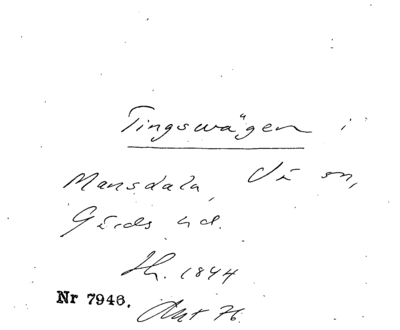 Tingswägen i
Mansdala, Vä sn,
Gärds hd.
Hr. 1844
Nr 7946.